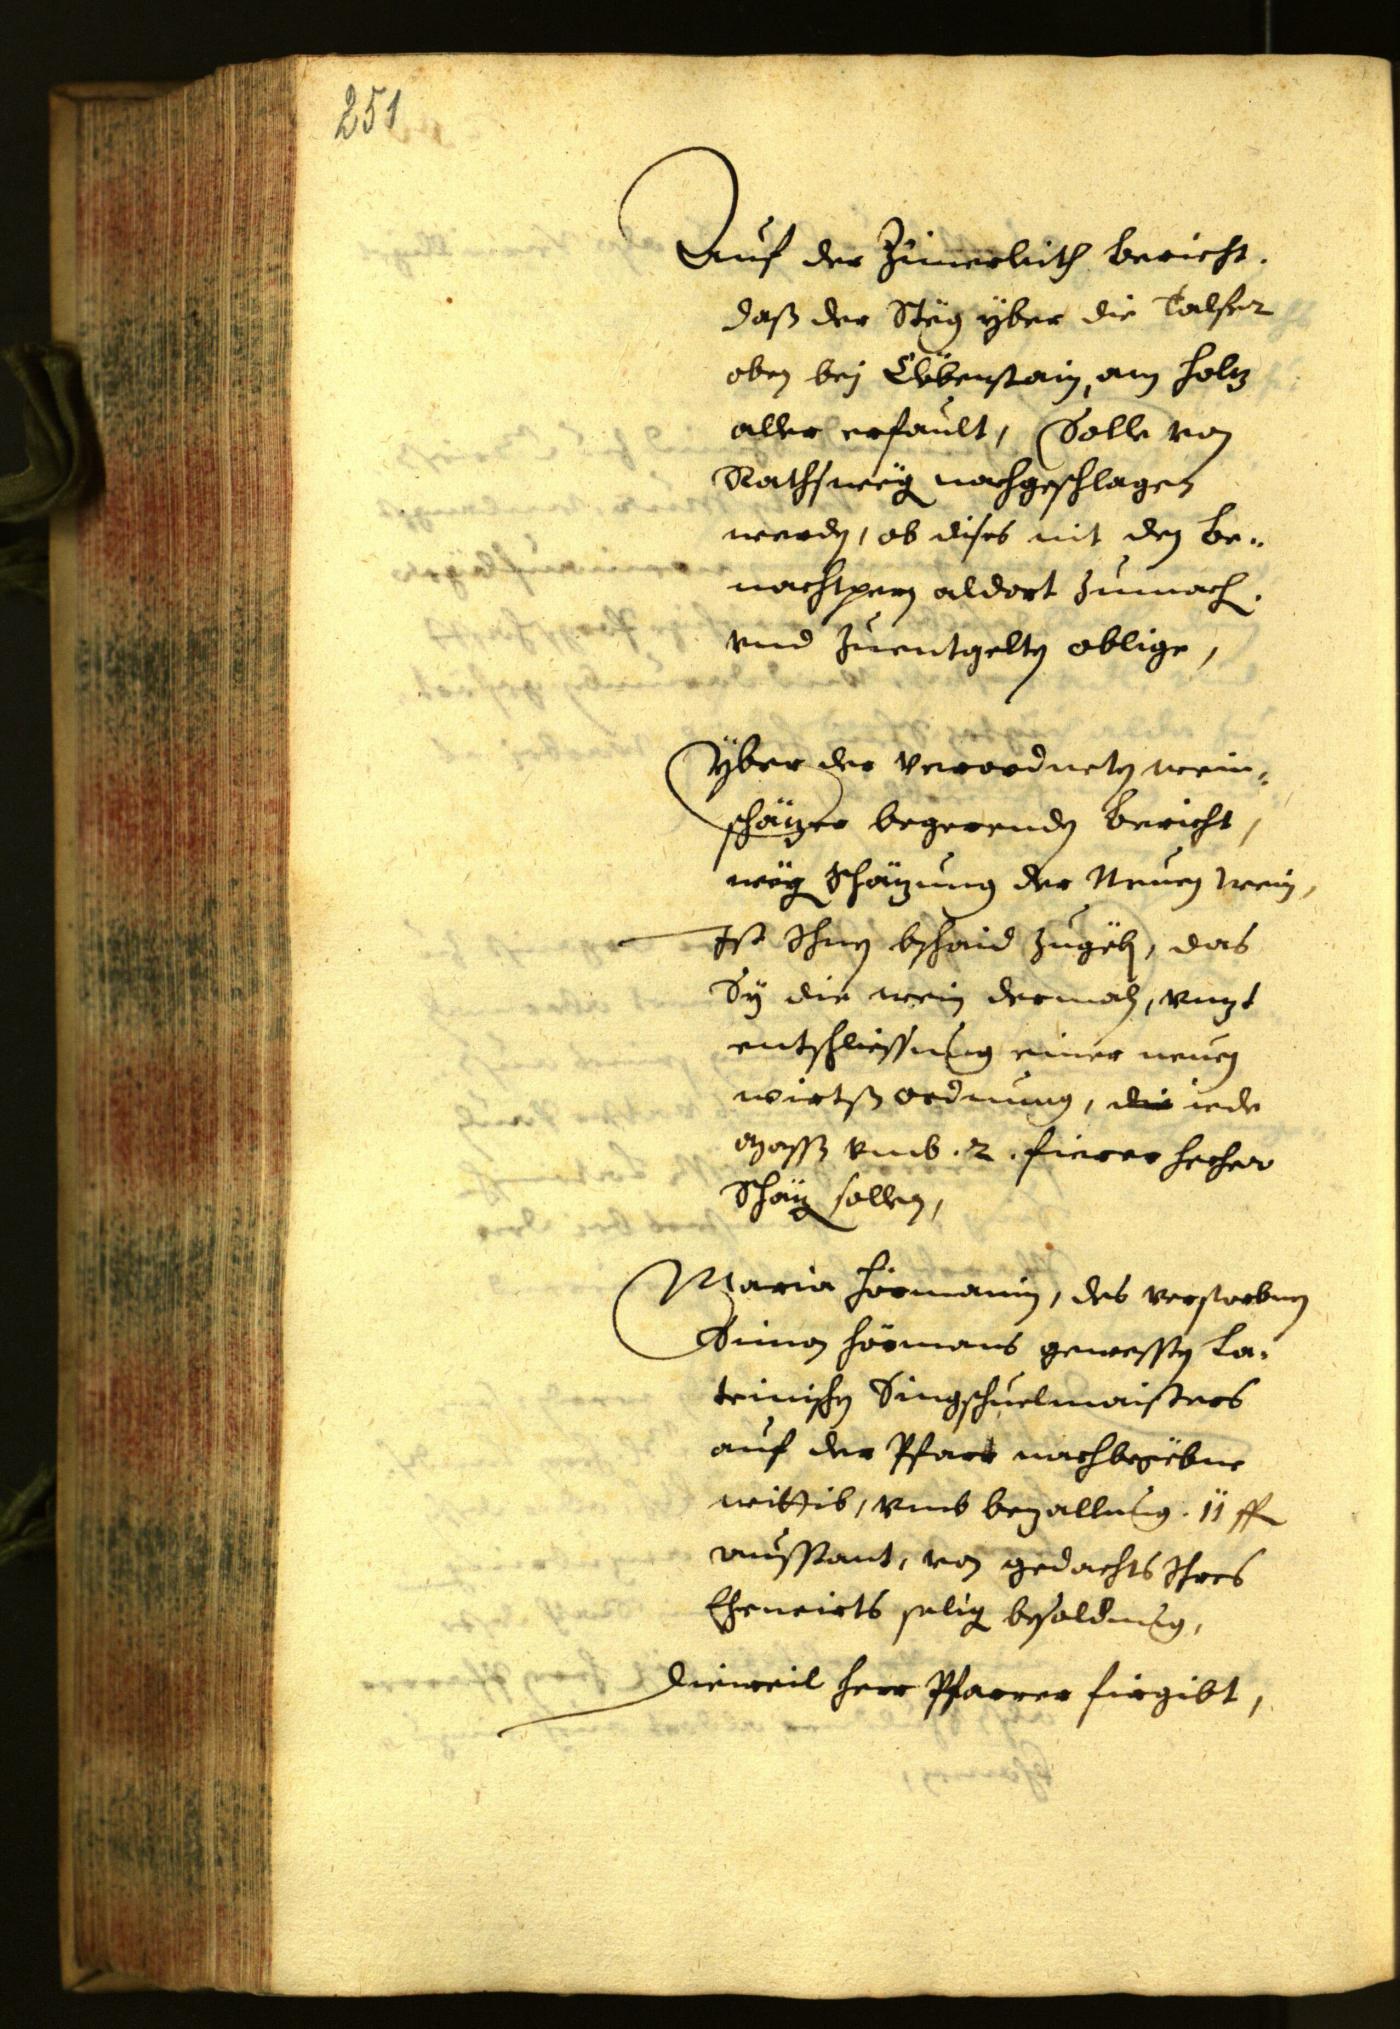 251
Auf der Zimerleith bericht.
daß der Stëg yber die Talfer
oben bei Clöbenstain, am holz
aller erfault, Solle von
Rathswëg nachgeschlagen
werdn, ob dises nit den be=
nachtpern aldort zumach.
vnd zuentgelten oblige,
Yber der verordneten wein=
schäzer begerenden bericht,
wëg Schäzung der Neuen wein,
Ist Ihnen bschaid zugëb, das
Sy die wein dermaln, vnzt
entschliessung einer neuen
wirtß ordnung, die iede
maß vmb .2. fierer hecher
Schäz sollen,
Maria Hörmanin, des verstorbnen
Simon Hörmans gewessten La=
teinischen Singschuelmaisters
auf der Pfarr nachbegëbne
wittib, vmb bezallung .11 fl
ausstant, von gedachts Ihres
Ehewirts selig besoldung,
Dieweil Herr Pfarrer firgibt,